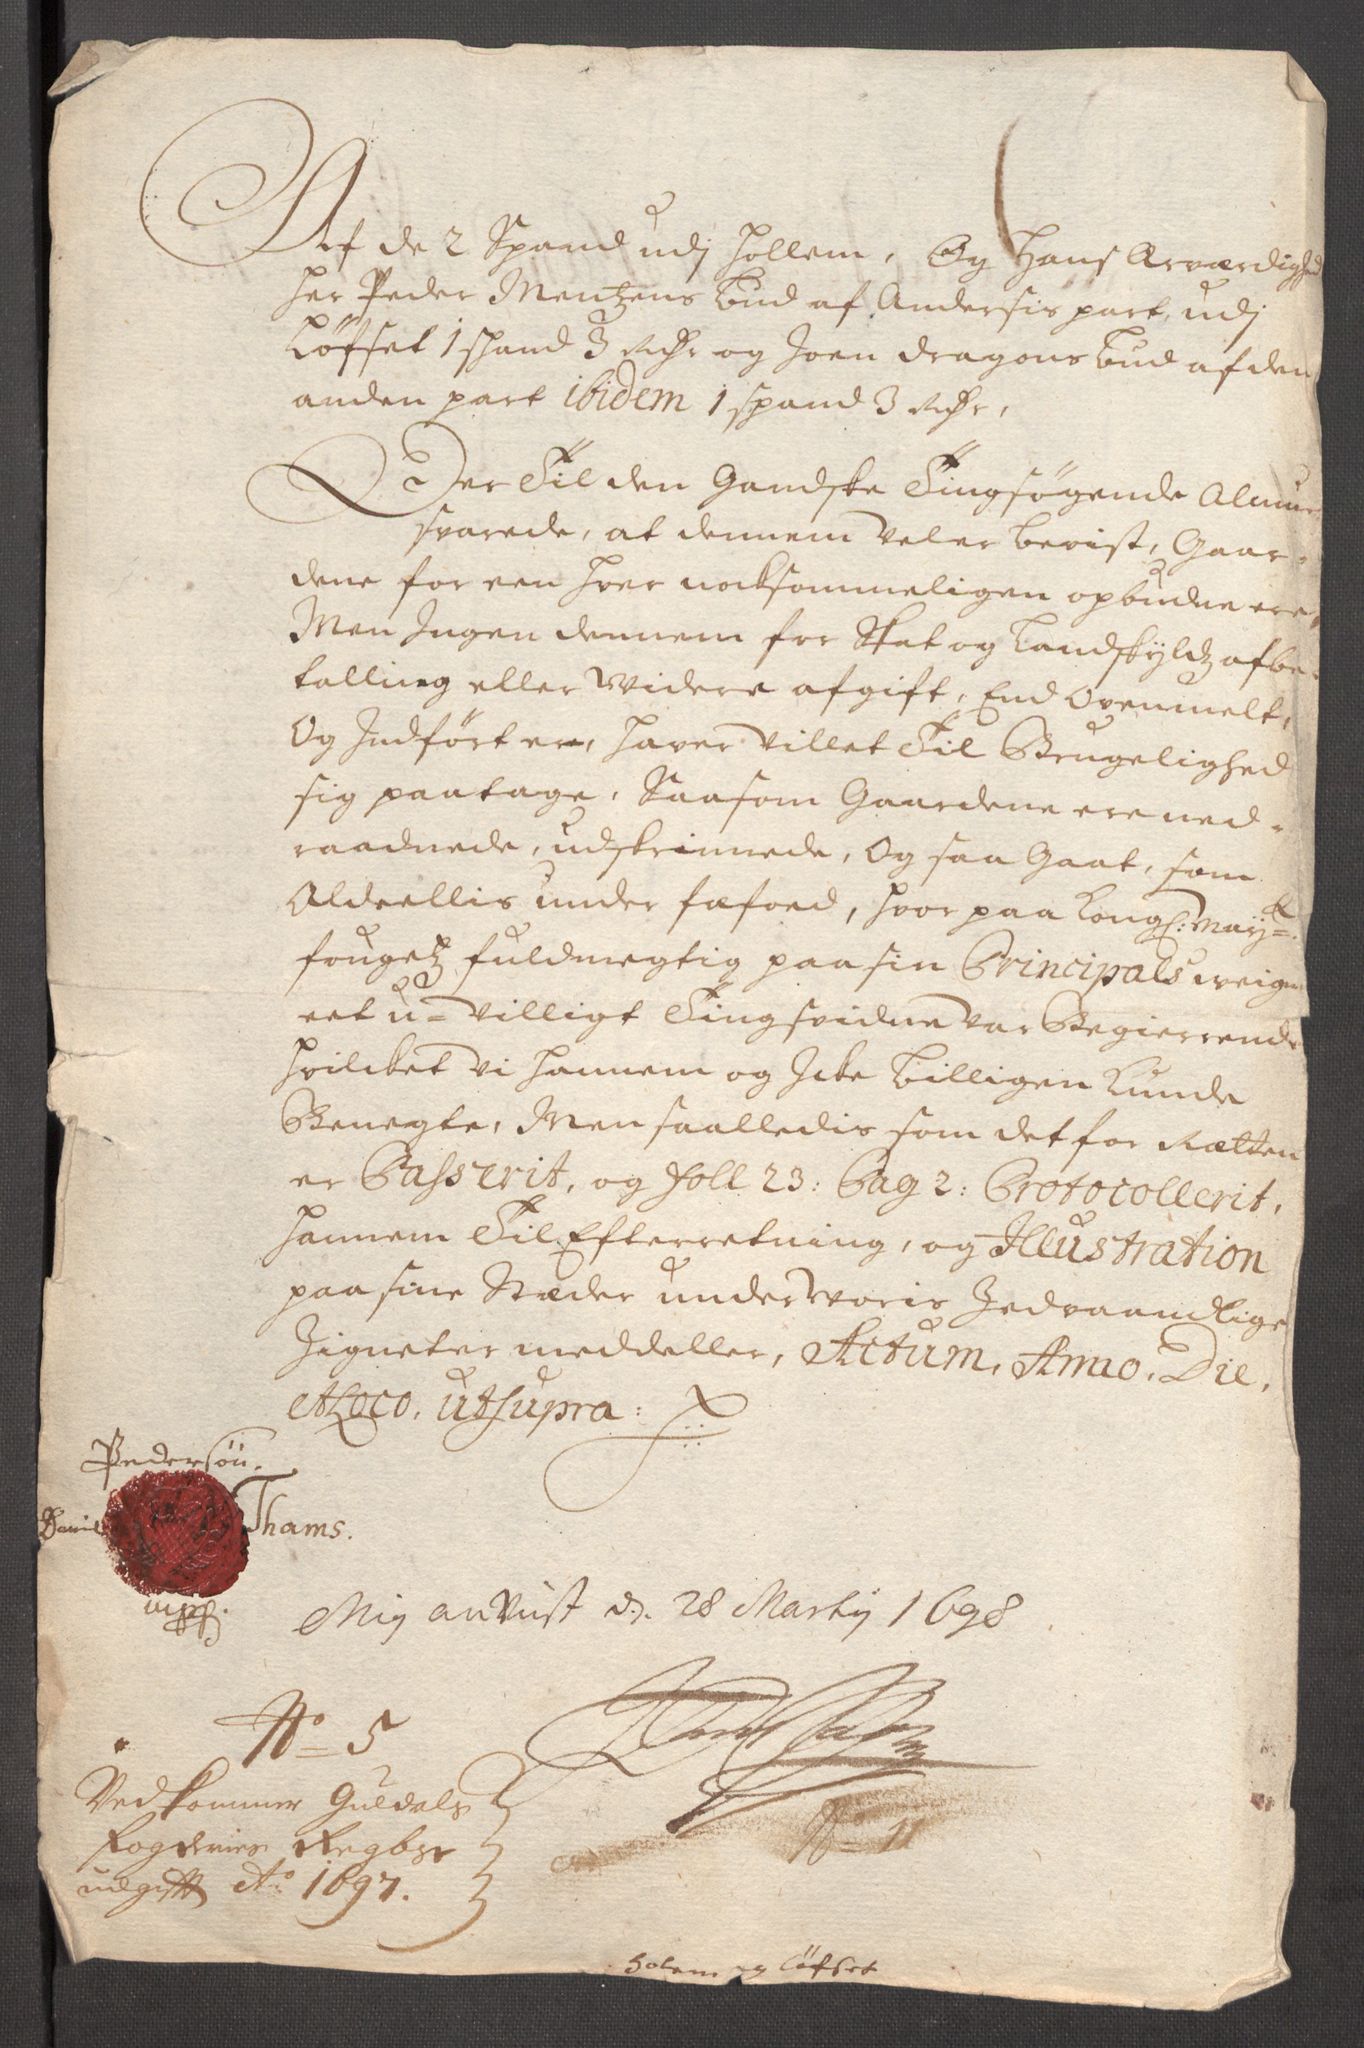 Af de 2 Spand udj Hollem, Og Hans Ærværdighed
Her Peder Mentzens bud af Andersis part, udj
Løfset 1 spand 3 Mkr og Joen dragons bud af den
anden part ibidem 1 spand 3 Mkr,
Der Til den Gandske Tingsøgende Almue
svarede, at dennem vel er bevist, Gaar-
dene for een hver nocksommeligen opbudne ere,
Men Ingen dennem for Skat og Landskyldz afbe-
talling eller Widere afgift, End Ovenmelt,
Og Indført er, haver villet Til Brugelighed
sig paatage, Saasom Gaardene ere ned-
raadnede, udskrinnede, Og saa Gaat, som
Aldeellis under fæfoed, hvor paa Kongl: May:tz
fougetz fuldmegtig paa sin Principals weigne
eet u-villigt Tingsvidne var Begierrende
hvilcket vi hannem og Icke billigen kunde
Benegte, Men saalledis som det for Rætten
er Passerit, og foll 23: Pag 2: Protocollerit,
hannem Til Efterretning, og Illustration
paa sine Stæder under voris Zedvaandlige
Zigneter meddeller, Actum, Anno, Die,
et Loco, ut supra:
Pedersøn.
Daniel Thams.
mpp.
Mig anvist d. 28 Martij 1698
No 5
Vedkommer Guldals
Fogderies Regbsr
udgifft Ao 1697.
No 11
Holem og Løfset